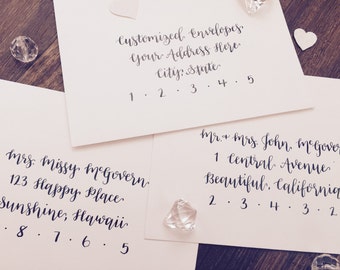 Customized Envelopes
Your Address Here
City, State
1 · 2 · 3 · 4 · 5
Mrs. Missy McGovern
123 Happy Place
Sunshine, Hawaii
· 8 · 7 · 6 · 5
Mr. + Mrs. John McGovern
1 Central Avenue
Beautiful, California
2 · 3 · 4 · 3 · 2